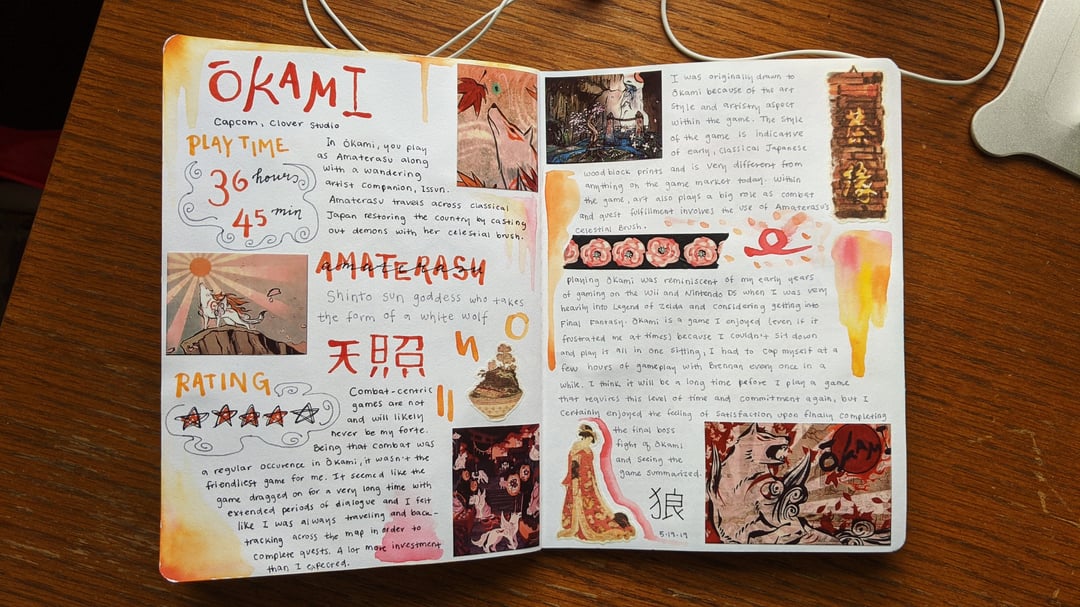 ŌKAMI
Capcom, Clover Studio
PLAY TIME
36 hours
45 min
In Ōkami, you play
as Amaterasu along
with a wandering
artist companion, Issun.
Amaterasu travels across classical
Japan restoring the country by casting
out demons with her celestial brush.
AMATERASU
amaterasu
Shinto sun goddess who takes
the form of a white wolf
天照
RATING
Combat-centric
games are not
and will likely
never be my forte.
Being that combat was
a regular occurence in Ōkami, it wasn't the
friendliest game for me. It seemed like the
game dragged on for a very long time with
extended periods of dialogue and I felt
like I was always traveling and back-
tracking across the map in order to
complete quests. A lot more investment
than I expected.
I was originally drawn to
Ōkami because of the art
style and artistry aspect
within the game. The style
of the game is indicative
of early, classical Japanese
woodblock prints and is very different from
anything on the game market today. Within
the game, art also plays a big role as combat
and quest fulfillment involves the use of Amaterasu's
celestial brush.
Playing Ōkami was reminiscent of my early years
of gaming on the Wii and Nintendo DS when I was very
heavily into Legend of Zelda and considering getting into
Final Fantasy. Ōkami is a game I enjoyed (even if it
frustrated me at times) because I couldn't sit down
and play is all in one sitting, I had to cap myself at a
few hours of gameplay with Brennan every once in a
while. I think it will be a long time before I play a game
that requires this level of time and commitment again, but I
certainly enjoyed the feeling of satisfaction upon finally completing
the final boss
fight of Ōkami
and seeing the
game summarized.
狼
5-19-19
ŌKAMI